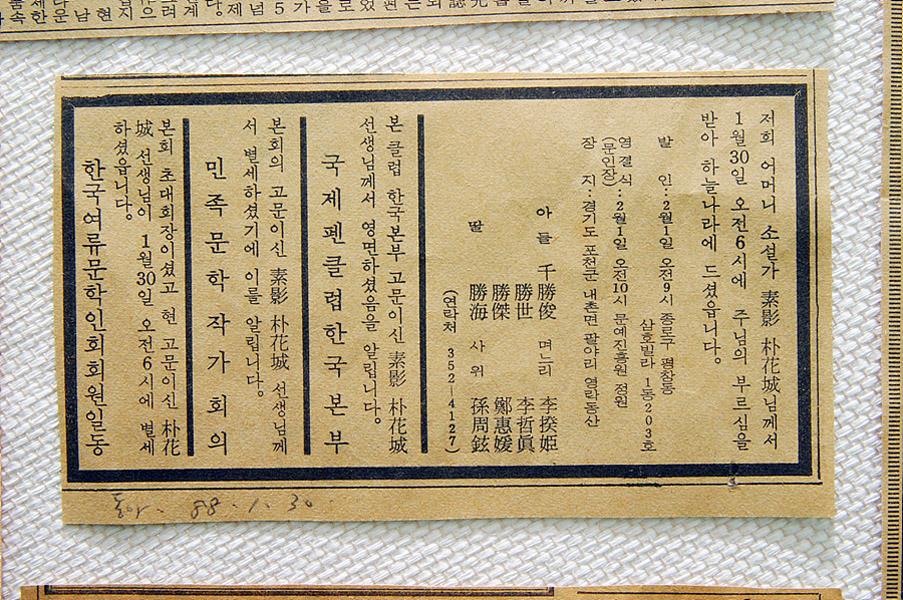 저희 어머니 소설가 素影 朴花城님께서
1월30일 오전6시에 주님의 부르심을
받아 하늘나라에 드셨읍니다.
발 인:2월1일 오전9시 종로구 평창동
삼호빌라 1동203호
영결식:2월1일 오전10시 문예진흥원 정원
(문인장)
장 지:경기도 포천군 내촌면 팔야리 영락동산
아들 千勝俊 며느리 李揆姫
勝世 李哲眞
勝傑 鄭惠媛
딸 勝海 사위 孫周鉉
(연락처 352—4127)
본 클럽 한국본부 고문이신 素影 朴花城
선생님께서 영면하셨음을 알립니다.
국제펜클럽한국본부
본회의 고문이신 素影 朴花城 선생님께
서 별세하셨기에 이를 알립니다.
민족문학작가회의
본회 초대회장이셨고 현 고문이신 朴花
城 선생님이 1월30일 오전6시에 별세
하셨읍니다.
한국여류문학인회회원일동
동아. 88. 1. 30.